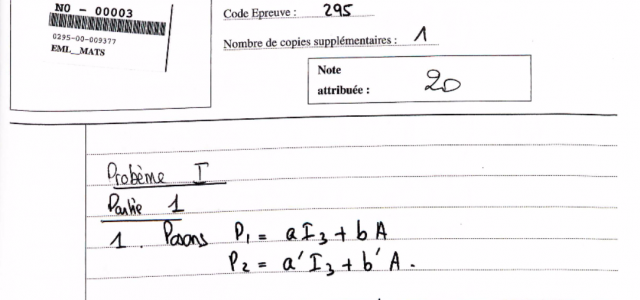 NO - 00003
0295-00-009377
EML_MATS
Code Epreuve : 295
Nombre de copies supplémentaires : 1
Note
attribuée : 20
Probème I
Partie 1
1. Posons P₁ = a I₃ + b A
P₂ = a' I₃ + b' A.